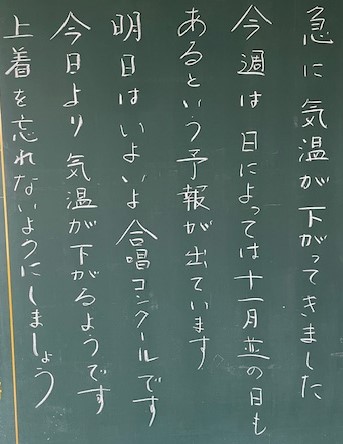 急に気温が下がってきました
今週は日によっては十一月並の日も
あるという予報が出ています
明日はいよいよ合唱コンクールです
今日より気温が下がるようです
上着を忘れないようにしましょう